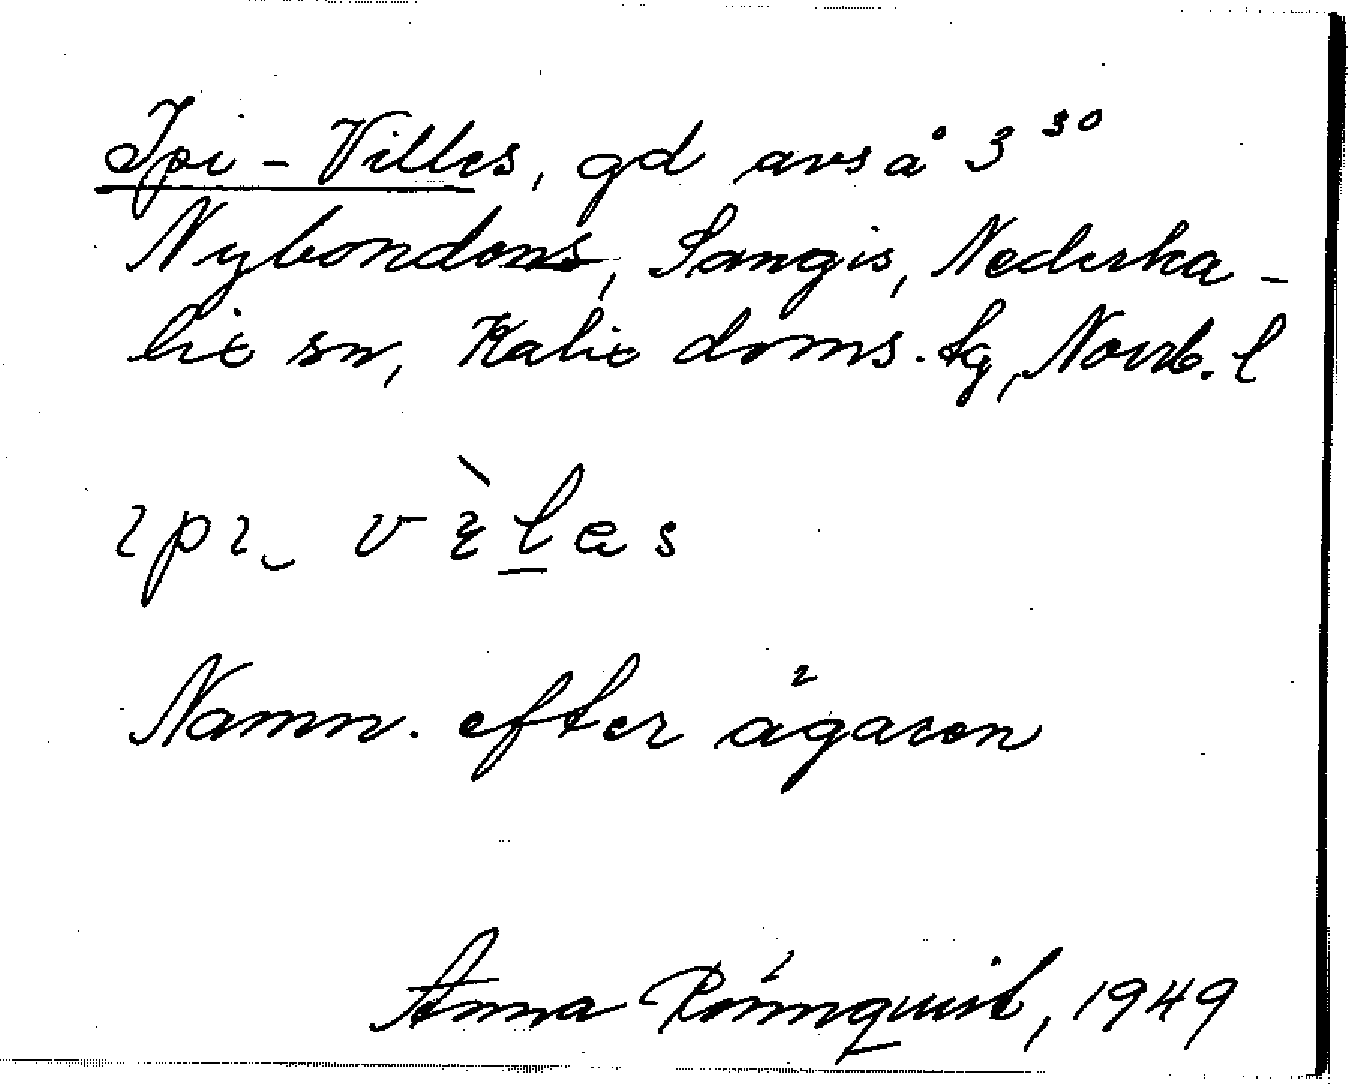 Ipi-Villes, gd avs å 3 30
Nybondens, Sangis, Nederka-
lix sn, Kalix doms. tg, Norrb. l
ipi vèlas
Namn. efter ägaren
Anna Rönnquist, 1949